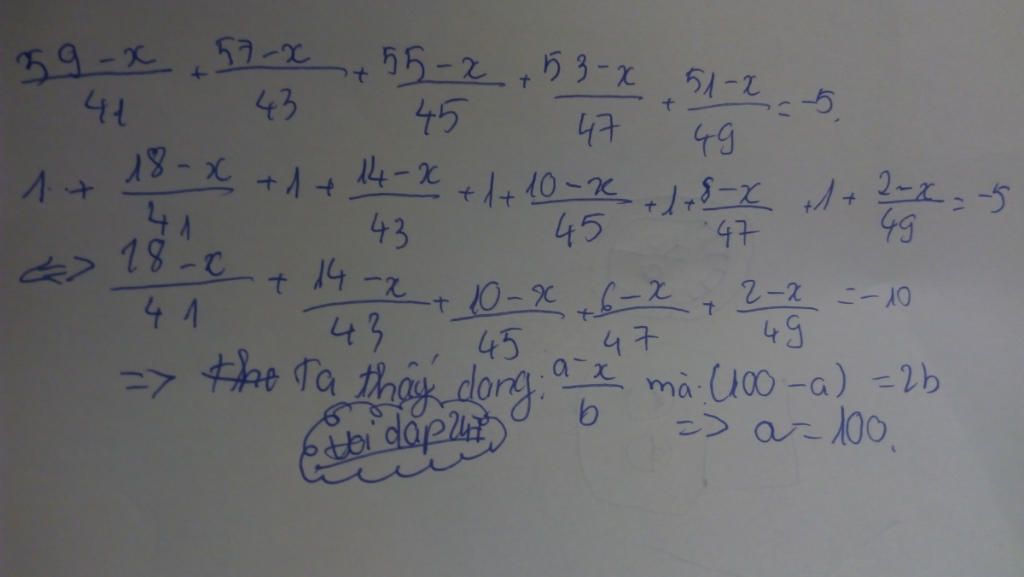 59-x/41 + 57-x/43 + 55-x/45 + 53-x/47 + 51-x/49 = -5.
1 + 18-x/41 + 1 + 14-x/43 + 1 + 10-x/45 + 1 + 8-x/47 + 1 + 2-x/49 = -5
<=> 18-x/41 + 14-x/43 + 10-x/45 + 6-x/47 + 2-x/49 = -10
=> Ta thấy dạng: a-x/b mà (100-a) = 2b
=> a = 100.
đáp 247